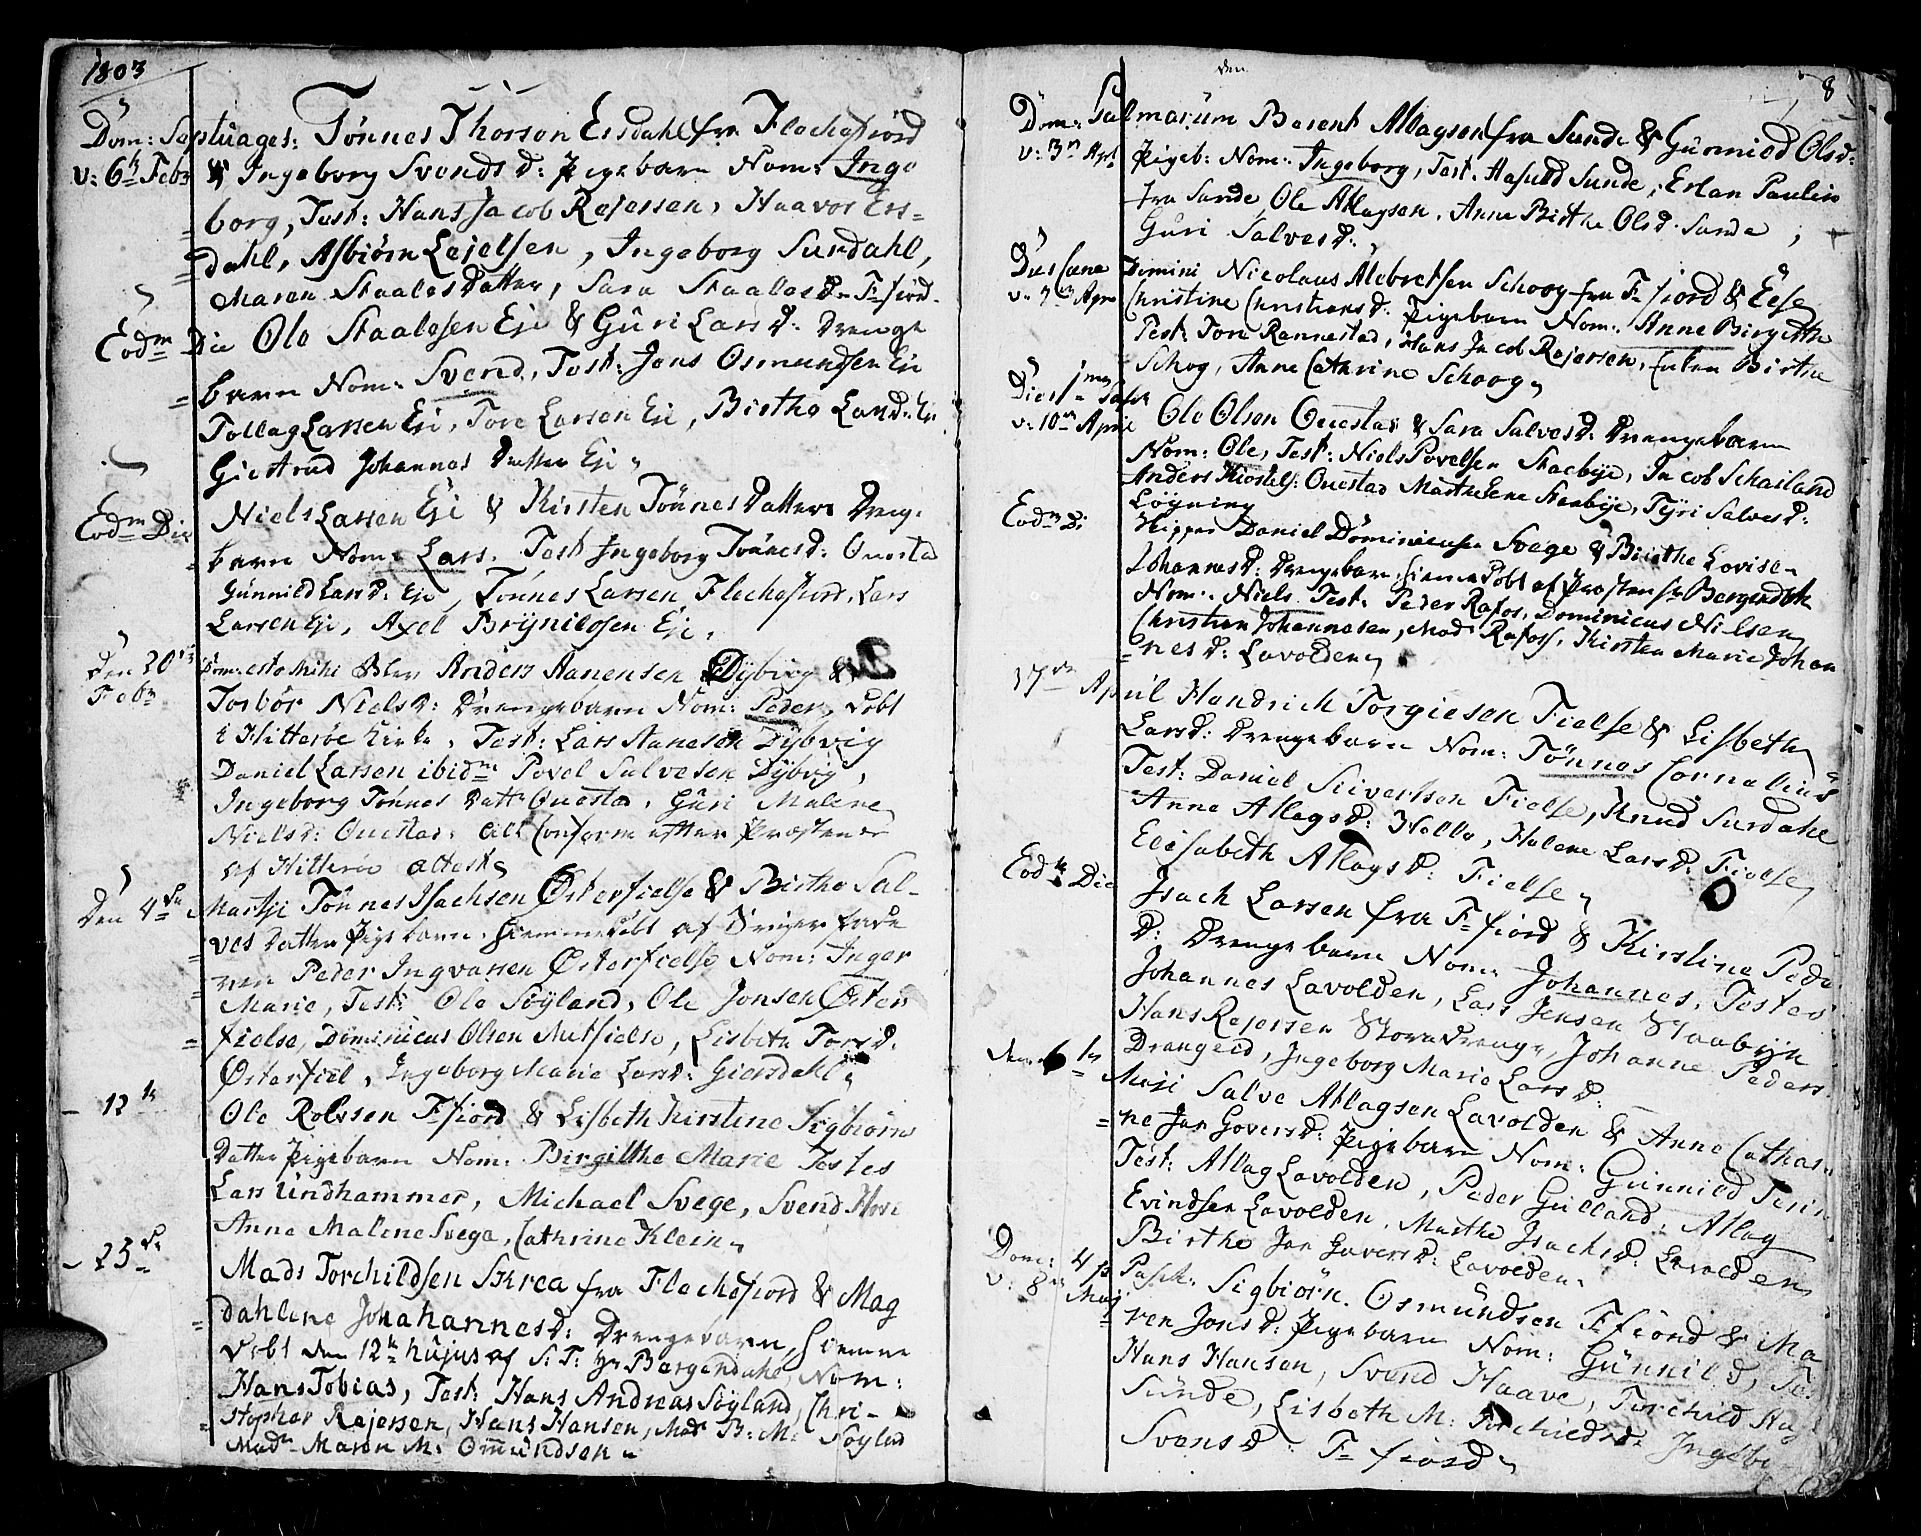 1803
Dom: Septuages: Tönnes Thorson Ersdahl fra Flechefiord
v: 6te Febr & Ingeborg Svends d: Pigebarn Nom: Inge
borg, Test: Hans Jacob Rejersen, Haavor Ers=
dahl, Asbiörn Lejelsen, Ingeborg Surdahl,
Maren Staales Datter, Sara Staales d: F=fiord.
Eodm Die Ole Staalesen Eje & Güri Lars d: Drenge
barn Nom: Svend, Test: Jens Osmundsen Eje
Tollag Larsen Eje, Tore Larsen Eje, Birthe
Giertrud Johannes Datter Eje,
Eodm Die Niels Larsen Eje & Kirsten Tönnes Datters Dreng-
barn Nom: Lars. Test Ingeborg Tönnes d: Questad
Günnild Lars d: Eje, Tönnes Larsen Flechefiord, Lars
Larsen Eje, Axel Brÿnildsen Eje,
Den 20de Dom: esto mihi Anders Aanensen Dÿbvig &
Febr Torbör Niels d: Drengebarn Nom: Peder, döbt
i Hitteröe Kirke, Test: Lars Aanesen Dÿbvig
Daniel Larsen ibidm Povel Salvesen Dÿbvig,
Ingeborg Tönnes Datt: Questad, Güri Malene
Niels d: Questad, alt Conform efter Præstens
af Hitteröe attest,
Den 4de Martji Tönnes Isachsen Østerfielse & Birthe Sal-
ves Datter Pigebarn, hiemmedöbt af
Peder Ingvarsen Østerfielse Nom: Inger
Marie, Test: Ole Söÿland, Ole Jonsen Øster
fielse, Dominicus Olsen Mitfielse, Lisbeth Tors d:
Østerfiel, Ingeborg Marie Lars d: Giersdahl,
- 12te Ole Rolvsen F=fiord & Lisbeth Kirstine Sigbiörns
Datter Pigebarn Nom: Birgitthe Marie Testes
Lars Undhammer, Michael Svege, Svend Hove
Anne Malene Svege, Cathrine Klein,
- 25de Mads Torchildsen Skrea fra Flechefiord & Mag
dahlene Johahannes d: Drengebarn, hiemme
döbt den 12te hüjus af S: T: Hr Bergendahl, Nom:
Hans Tobias, Test: Hans Andreas Söÿland, Chri-
stopher Rejersen, Hans Hansen, Mad: B: M: Söÿland
Mad: Maren M: Omündsen,
8
Dom: Palmarüm Berent Atlagsen fra Sunde & Günnild Olsd:
v: 3die Apr: Pigeb: Nom: Ingeborg, Test. Aasuld Sunde, Erlan Paulin
fra Sunde, Ole Atlagsen, Anne Birthe Olsd. Sunde,
Güri Salves d:,
Dies Cæne Domini Nicolaus Alebretsen Schoog fra F=fiord & Else
v: 7de Apr Christine Christians d: Pigebarn Nom: Anne Birgitthe
Test: Tore Rannestad, Hans Jacob Rejersen, Birthe
Schog, Anne Cathrine Schoog,
Dies Pasch
v: 10de April Ole Olsen Questad & Sara Salves d: Drengebarn
Nom: Ole, Test: Niels Povelsen Staebÿe, Jacob Schailand
Anders Questad Marthe Lene Staebÿe, Tÿri Salves d:
Lögning
Eodm Di Skipper Daniel Dominicusen Svege & Birthe Lovise
Johannes d: Drengebarn, hiemmedöbt af Prosten Hr Bergendahl
Nom: Niels. Test: Peder Rafos, Dominicus Nilsen
Christian Johannesen, Mad: Rafoss, Kirsten Marie Johan
=nes d: Lavolden,
17de April Hendrich Torgiesen Fielse & Lisbeth
Larsd: Drengebarn Nom: Tönnes Cornelius
Test: Daniel Siivertsen Fielse, Knud Surdahl
Anne Atlagsd: Helle, Helene Larsd: Fielse,
Elisabeth Atlags d: Fielse,
Eodm Die Isach Larsen fra F=fiord & Kirstine Peder
d: Drengebarn Nom: Johannes, Testes
Johannes Lavolden, Lars Jensen Staabÿe
Hans Rejersen Store Drenge, Johanne Peders
Drangeid, Ingeborg Marie Lars d:
den 6te Maji Salve Atlagsen Lavolden & Anne Cathari
=ne Jan Govers d: Pigebarn Nom: Günnild Terin
Test: Atlag Lavolden, Peder Guilland, Atlag
Evindsen Lavolden, Marthe Isachs d: Lavolden
Birthe Jan Govers d: Lavolden,
Dom: 4 p Pasch: Sigbiörn Osmündsen F=fiord & Ma
v: 8de Maj ren Jons d: Pigebarn Nom: Günnild, Te
Hans Hansen, Svend Haave, Torchild
Sünde, Lisbeth M: Torchilds d: Ingebo
Svens d: F=fiord,